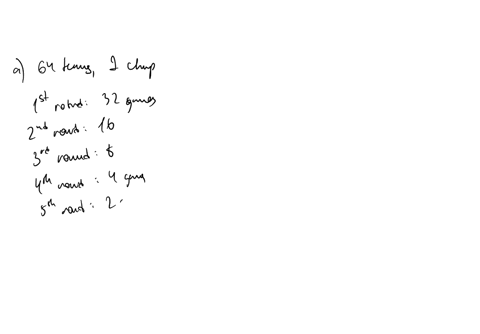 a) 64 teams, 1 champ
1st round: 32 games
2nd round: 16
3rd round: 8
4th round: 4 games
5th round: 2